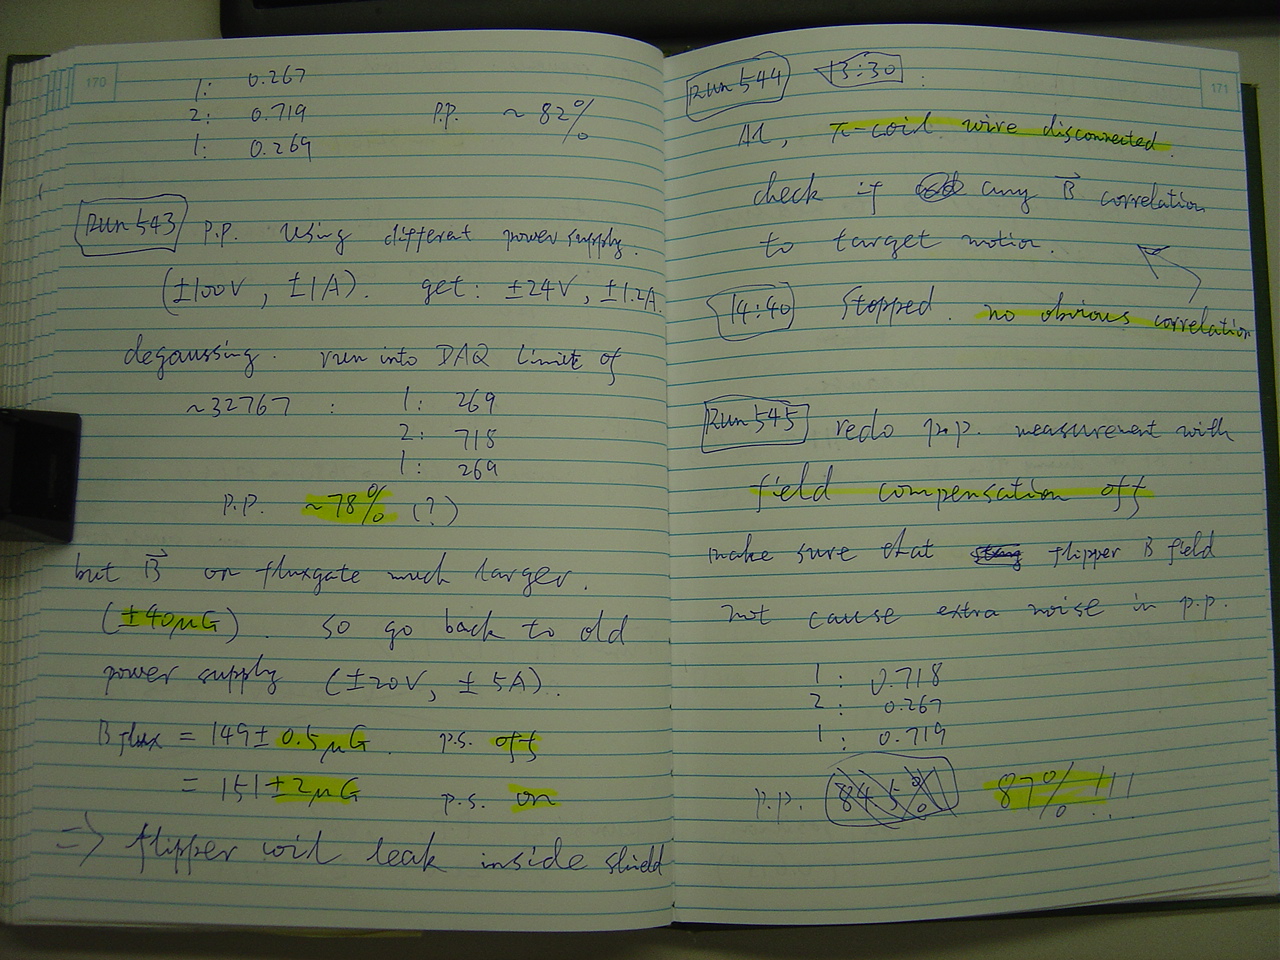 170
1: 0.267
2: 0.719 P.P. ~ 82%
1: 0.269
Run 543 P.P. using different power supply.
(±100V, ±1A). get: ±24V, ±1.2A
degaussing. run into DAQ limit of
~32767 : 1: 269
2: 718
1: 269
P.P. ~78% (?)
but B⃗ on fluxgate much larger.
(±40μG). so go back to old
power supply (±20V, ±5A).
B flux = 149 ± 0.5μG. p.s. off
= 151 ± 2μG p.s. on
=> flipper coil leak inside shield
171
Run 544 13:30 :
Al, π-coil wire disconnected.
check if any B⃗ correlation
to target motion.
14:40 stopped. no obvious correlation
Run 545 redo p.p. measurement with
field compensation off
make sure that flipper B field
not cause extra noise in p.p.
1: 0.718
2: 0.267
1: 0.719
P.P. 87% !!!